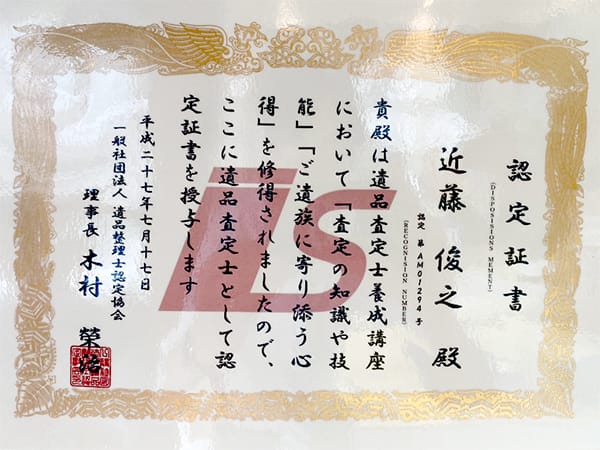 認定証書
(DISPOSISIONS MEMENT)
近藤 俊之 殿
認定 第AM01294号
(RECOGNISION NUMBER)
貴殿は遺品査定士養成講座
において「査定の知識や技
能」「ご遺族に寄り添う心
得」を修得されましたので、
ここに遺品査定士として認
定証書を授与します
平成二十七年七月十七日
一般社団法人 遺品整理士認定協会
理事長 木村 榮治
is